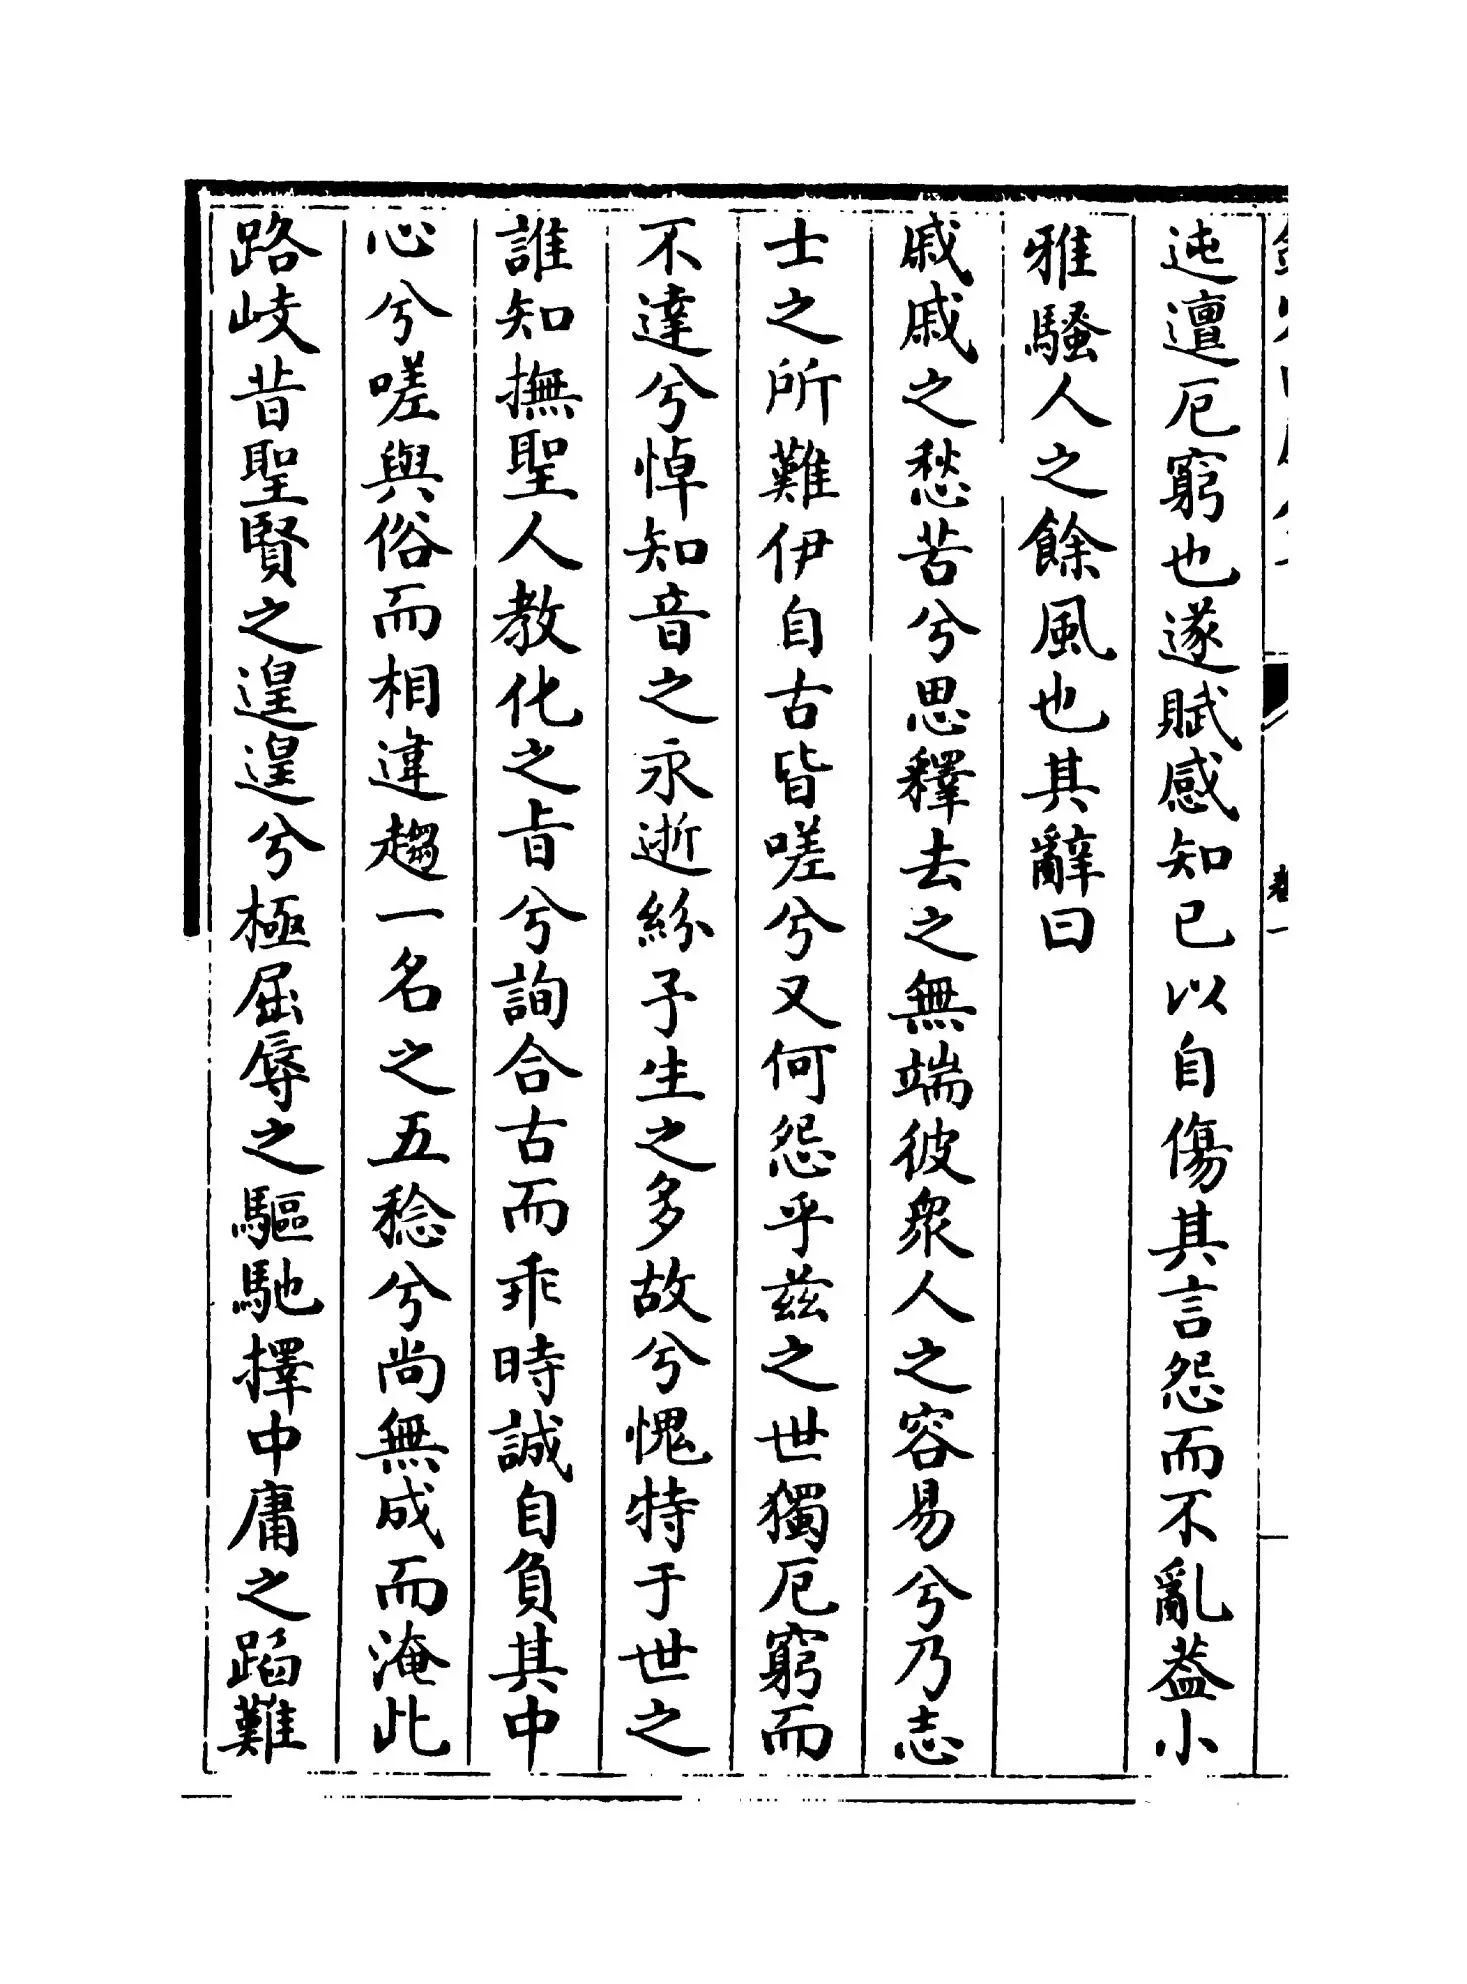 迍邅厄窮也遂賦感知已以自傷其言怨而不亂葢小
雅騷人之餘風也其辭曰
戚戚之愁苦兮思釋去之無端彼衆人之容易兮乃志
士之所難伊自古皆嗟兮又何怨乎兹之世獨厄窮而
不達兮悼知音之永逝紛予生之多故兮愧特于世之
誰知撫聖人教化之旨兮詢合古而乖時誠自負其中
心兮嗟與俗而相違趨一名之五稔兮尚無成而淹此
路岐昔聖賢之遑遑兮極屈辱之驅馳擇中庸之蹈難
卷一